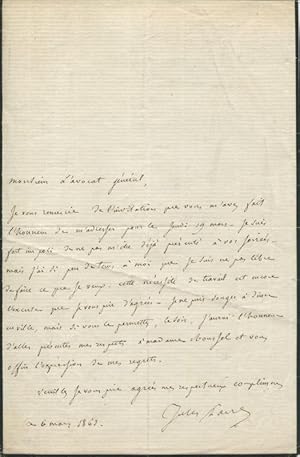 Monsieur L'avocat général,
Je vous remercie de l'invitation que vous m'avez fait
l'honneur de m'adresser pour le Jeudi 19 mars. Je suis
fort impoli de ne pas m'être déjà présenté à vos soirées
mais j'ai si peu de tems à moi que je suis pas libre
de faire ce que je veux. cette nécessité de travail est une
excuse que je vous prie d'agréer. Je ne puis songer à dîner
en ville, mais si vous le permettez, le soir, j'aurai l'honneur
d'aller présenter mes respects à madame et vous
offrir l'expression de mes regrets.
Veuillez je vous prie agréer mes respectueux complimens
ce 6 mars 1863.
Jules Favre